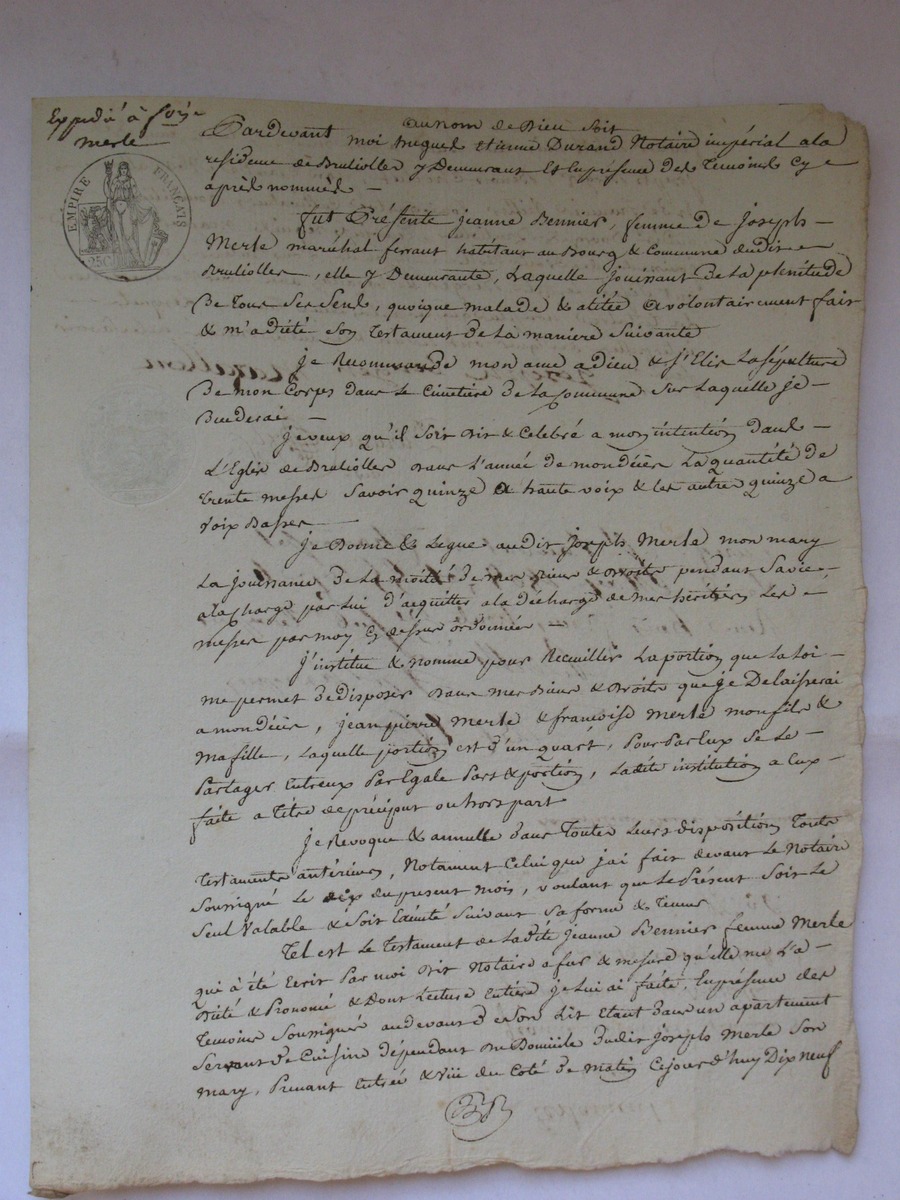 Expedié à
merle
EMPIRE FRANÇAIS
25C
au nom de Dieu soit
Pardevant moi hugues etienne Durand Notaire impérial a la
residence de Brulliolles y Demeurant Et En présence Des Temoins Cy
après nommés
fut Présente jeanne Bennier, femme De joseph
Merle maréchal ferrant habitant au Bourg & Commune dudit
Brulliolles, elle y Demeurante, Laquelle jouissant De La plénitude
De Tous Ses Sens, quoique malade & alitée a volontairement fait
& m'a dicté Son Testament De La maniere Suivante
je Recommande mon ame a dieu & j'Elis La sépulture
De mon Corps dans Le Cimetière De La Commune Sur Laquelle je
Deciderai
je veux qu'il Soit Dit & Celebré a mon intention Dans
L'Eglise de Brulliolles dans L'année de mon décès La quantité De
Trente messes Savoir quinze a haute voix & les autre quinze a
Voix Basses
je Donne & Legue audit joseph Merle mon mary
La jouissance De La moitié De mes Biens & Droits pendant Sa vie
a la charge par Lui d'acquitter a la décharge de mes héritiers Les
messes par moy Cy dessus ordonnées
j'institue & nomme pour Recueillir La portion que La Loi
me permet De disposer dans mes Biens & Droits que je Delaisserai
a mon décès, jean pierre Merle & françoise Merle mon fils &
ma fille, Laquelle portion est d'un quart, Pour Par Eux Se Le
Partager Entreux Par Egale Part & portion, Ladite institution a Eux
faite a Titre de préciput ou hors part
je Revoque & annulle dans Toutes Leurs disposition Touts
Testaments antérieurs, Notament Celui que j'ai fait devant Le Notaire
Soussigné Le dix du present mois, voulant que Le Présent Soit Le
Seul Valable & Soit Exécuté Suivant Sa forme & Teneur
Tel est Le Testament de Ladite Jeanne Bennier femme Merle
qui à été Ecrit Par moi dit Notaire a fur & mesure qu'elle me L'a
Dicté & Prononcé & Dont Lecture Entière je Lui ai faite, En présence des
Temoins Soussignés au devant de Son Lit Etant Dans un apartement
Servant De Cuisine dépendant du Domicile Dudit Joseph Merle Son
mary, Prenant Entrée & Vüe du Coté De matin Ce jour d'huy Dix neuf